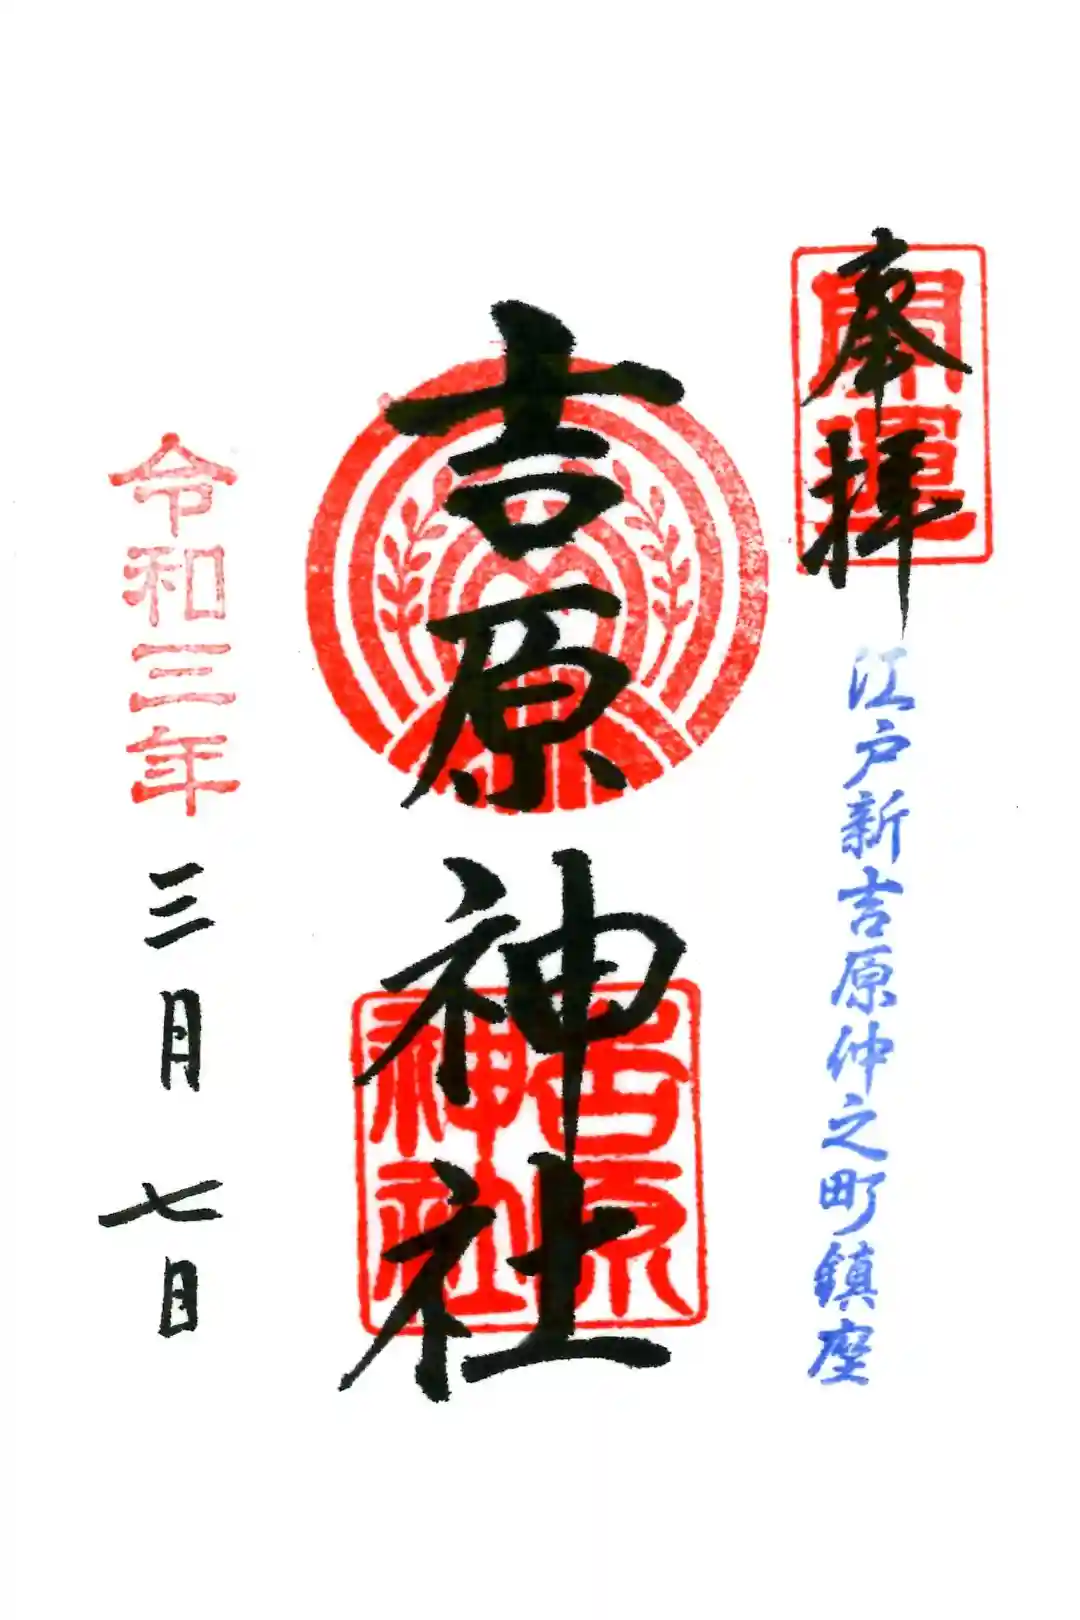 奉拝
開運
江戸新吉原仲之町鎮座
吉原神社
吉原
神社
令和三年
三月七日